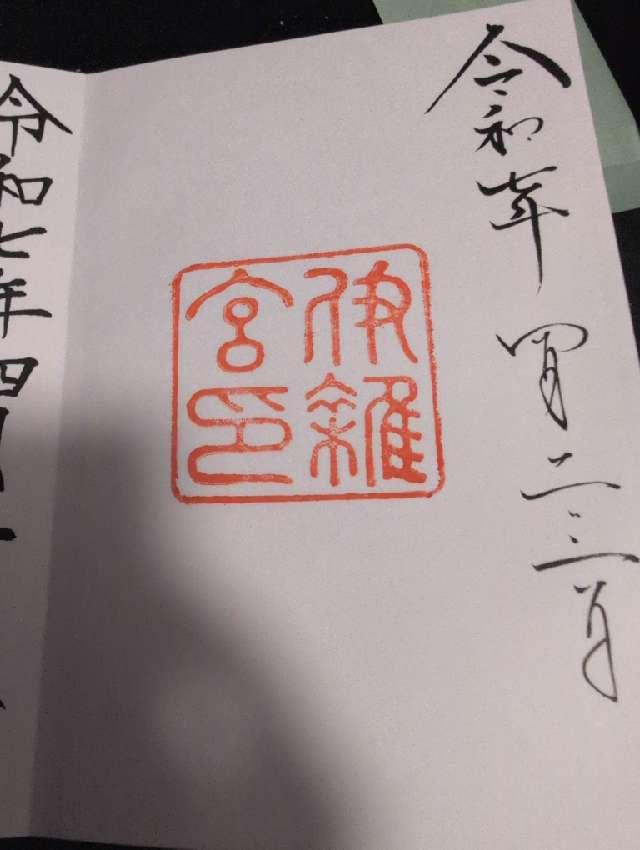 令和七年四月二三日
伊雜
宮印
令和七年四月